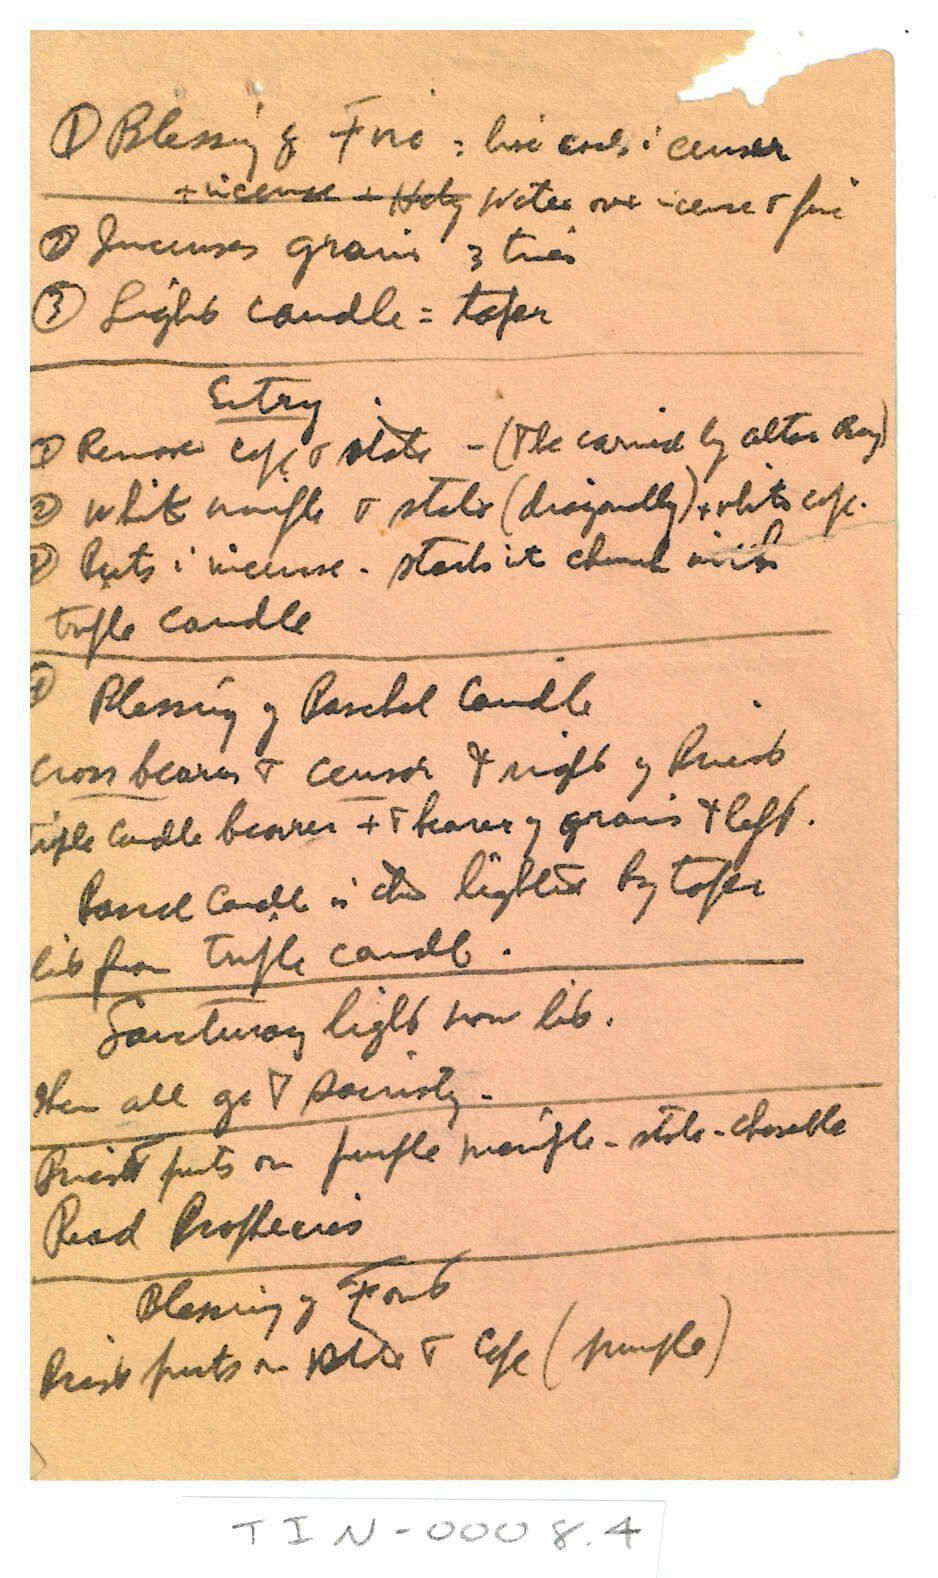 ① Blessing of Fire : live coals i censer
+ incense + Holy Water over incense & fire
② Incenses grains 3 times
③ Light candle = taper
Entry
① Remove cope & stole - (to be carried by altar boy)
② White maniple & stole (diagonally) + white cope.
③ Puts i incense - starts it church with
triple candle
① Blessing of Paschal Candle
Cross bearer & censor to right of Priest
triple Candle bearer + bearer of grains to left.
Candle is then lighted by taper
lit from triple candle.
Sanctuary light now lit.
then all go to Sacristy.
Priest puts on purple maniple - stole - chasuble
Read Prophecies
Blessing of Font
Priest puts on stole & Cope (purple)
TIN-0008.4